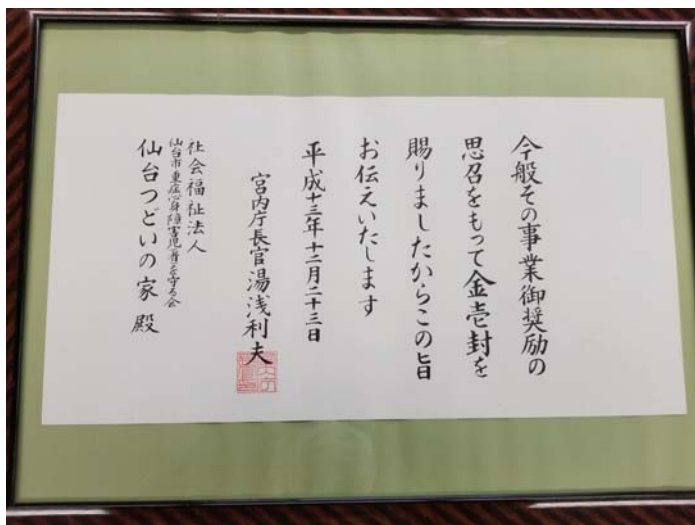 今般その事業御奨励の
思召をもって金壱封を
賜りましたからこの旨
お伝えいたします
平成十三年十二月二十三日
宮内庁長官湯浅利夫
社会福祉法人
仙台市重症心身障害児(者)を守る会
仙台つどいの家 殿